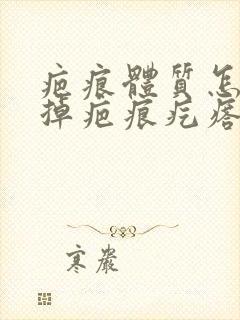 疤痕體質怎
掉疤痕疙瘩
寒巖